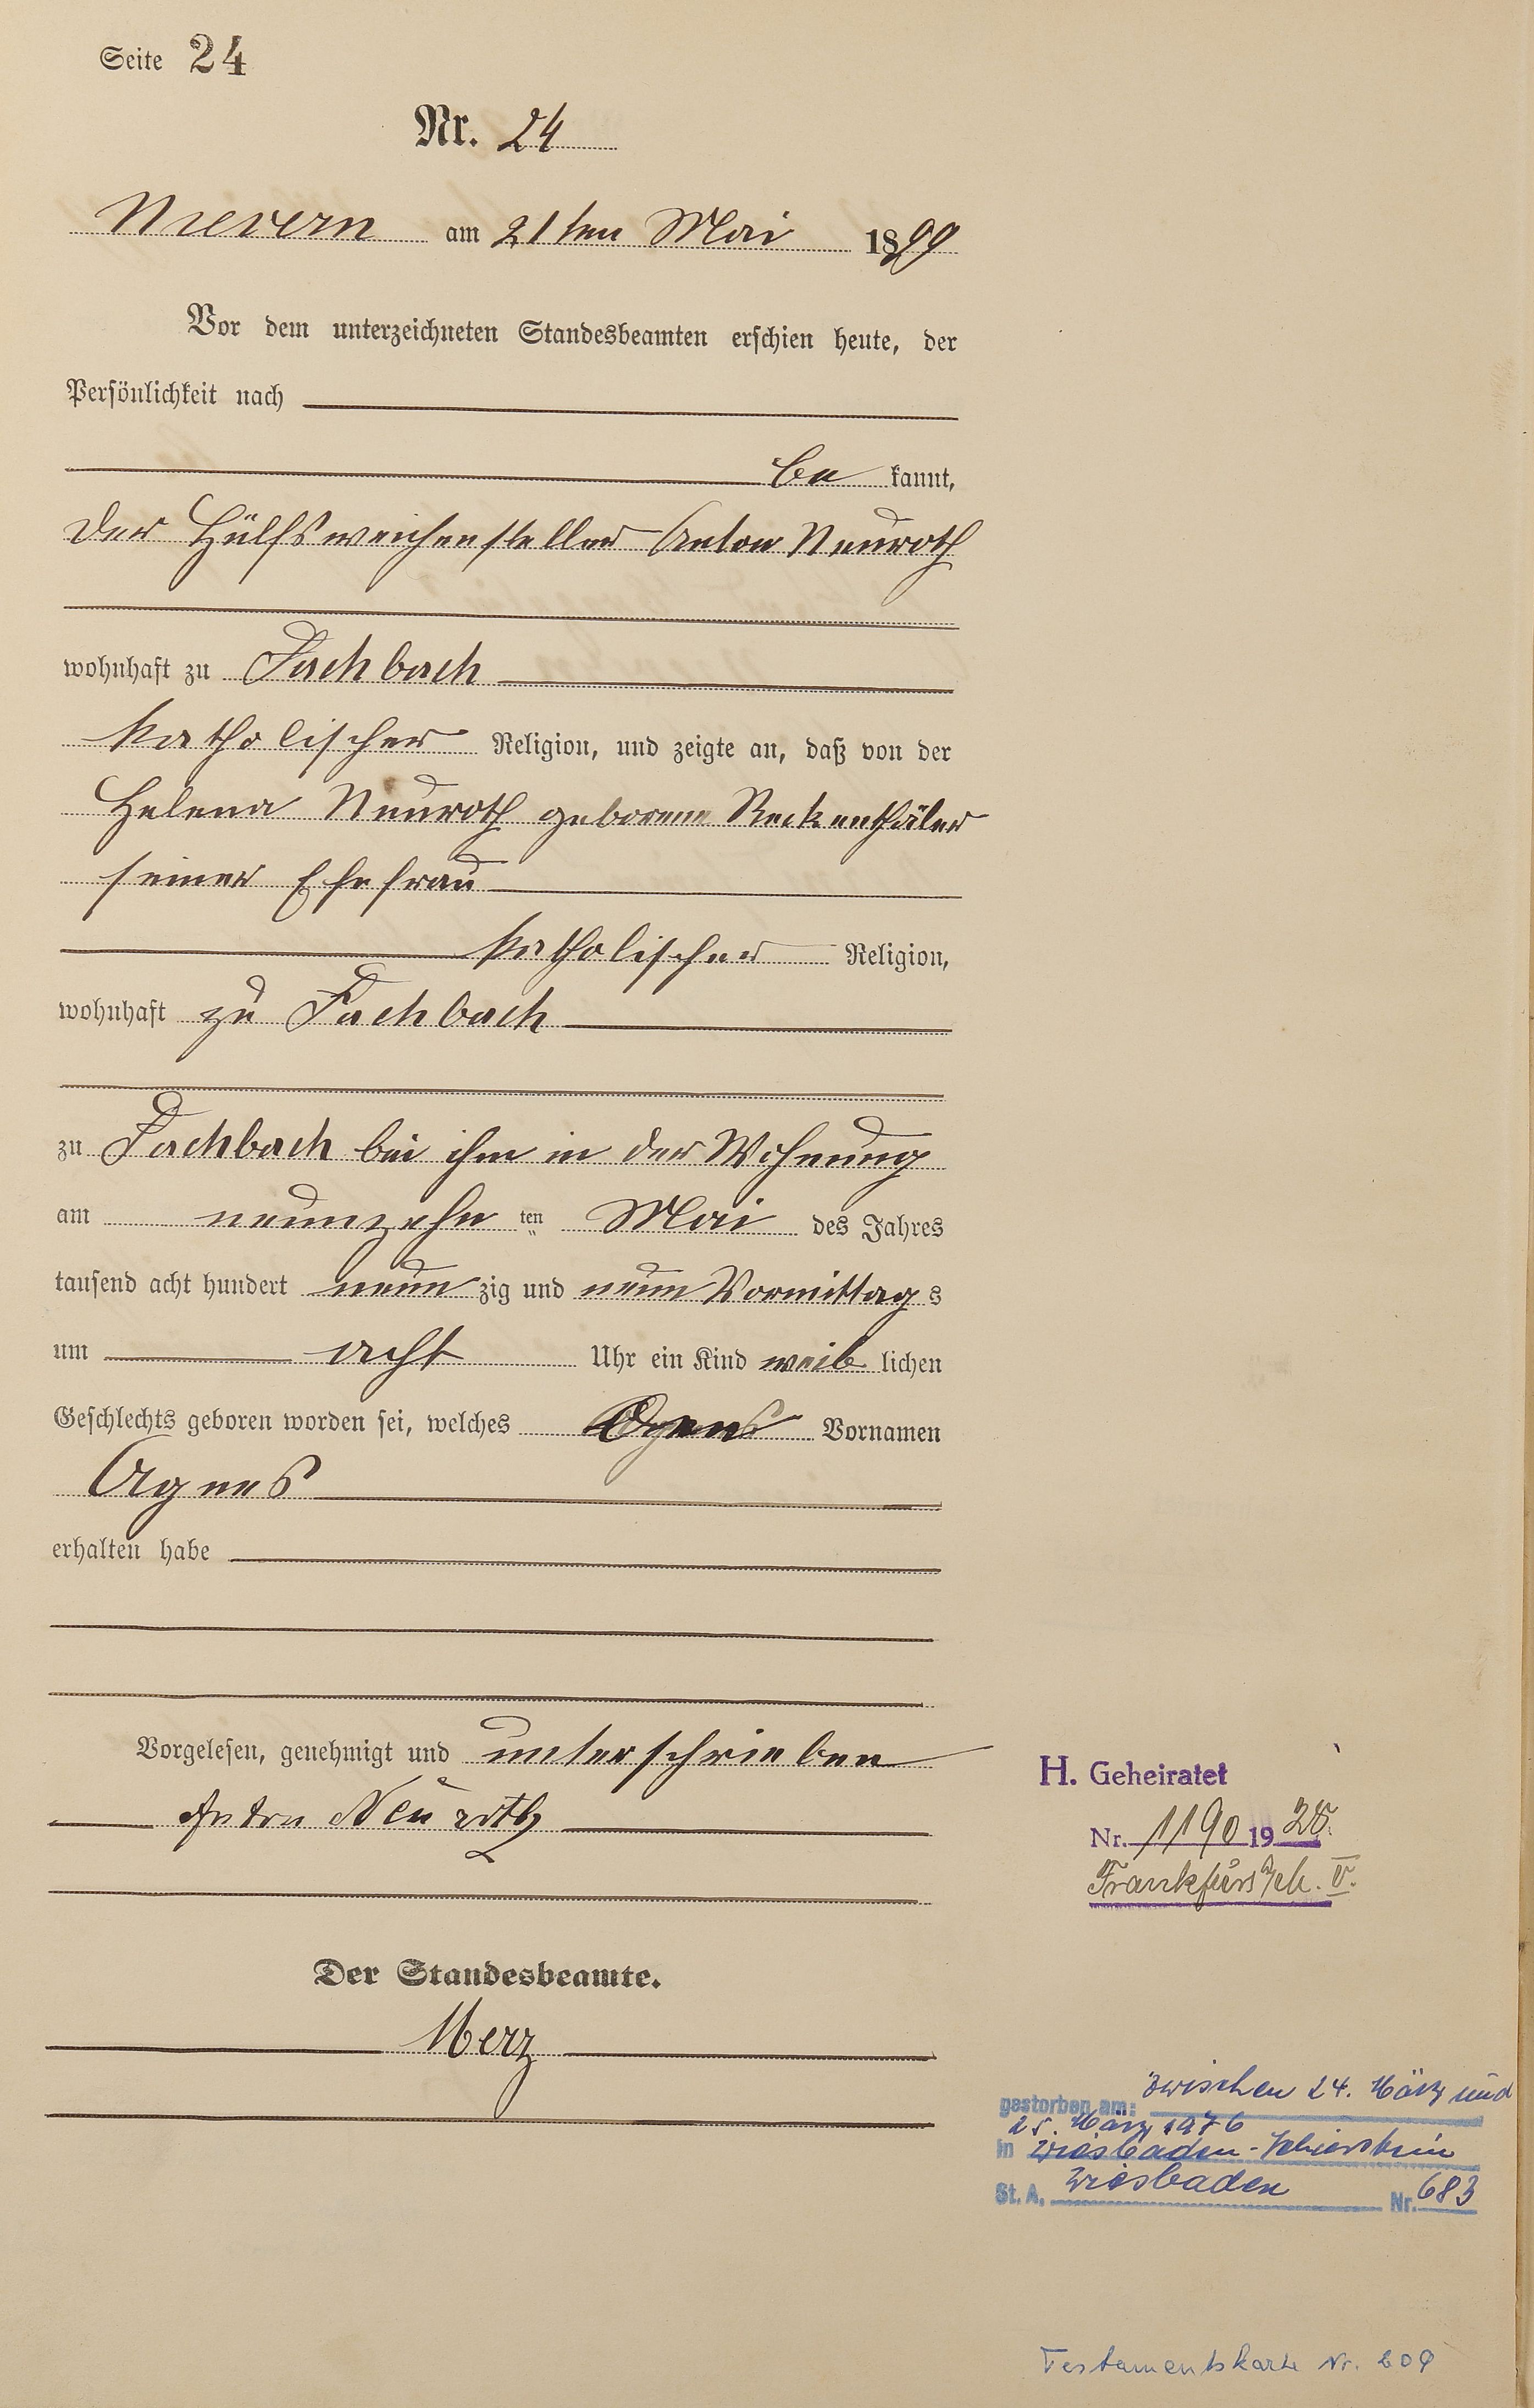 Seite 24
Nr. 24
Nievern am 21ten Mai 1899
Vor dem unterzeichneten Standesbeamten erschien heute, der
Persönlichkeit nach
be kannt,
der Hülfsweichensteller Anton Neuroth
wohnhaft zu Fachbach
katholischer Religion, und zeigte an, daß von der
Helena Neuroth geborene Reckenthäler
seiner Ehefrau
katholischer Religion,
wohnhaft zu Fachbach
zu Fachbach bei ihm in der Wohnung
am neunzehn ten Mai des Jahres
tausend acht hundert neun zig und neun Vormittag s
um acht Uhr ein Kind weib lichen
Geschlechts geboren worden sei, welches Vornamen
Agnes
erhalten habe
Vorgelesen, genehmigt und unterschrieben
Anton Neuroth
H. Geheiratet
Nr. 1190 19
Frankfurt a/M. V.
Der Standesbeamte.
Merz
gestorben am: zwischen 24. März und
25. März 1976
in Wiesbaden-Schierstein
St. A. Wiesbaden Nr. 683
Testamentskarte Nr. 209